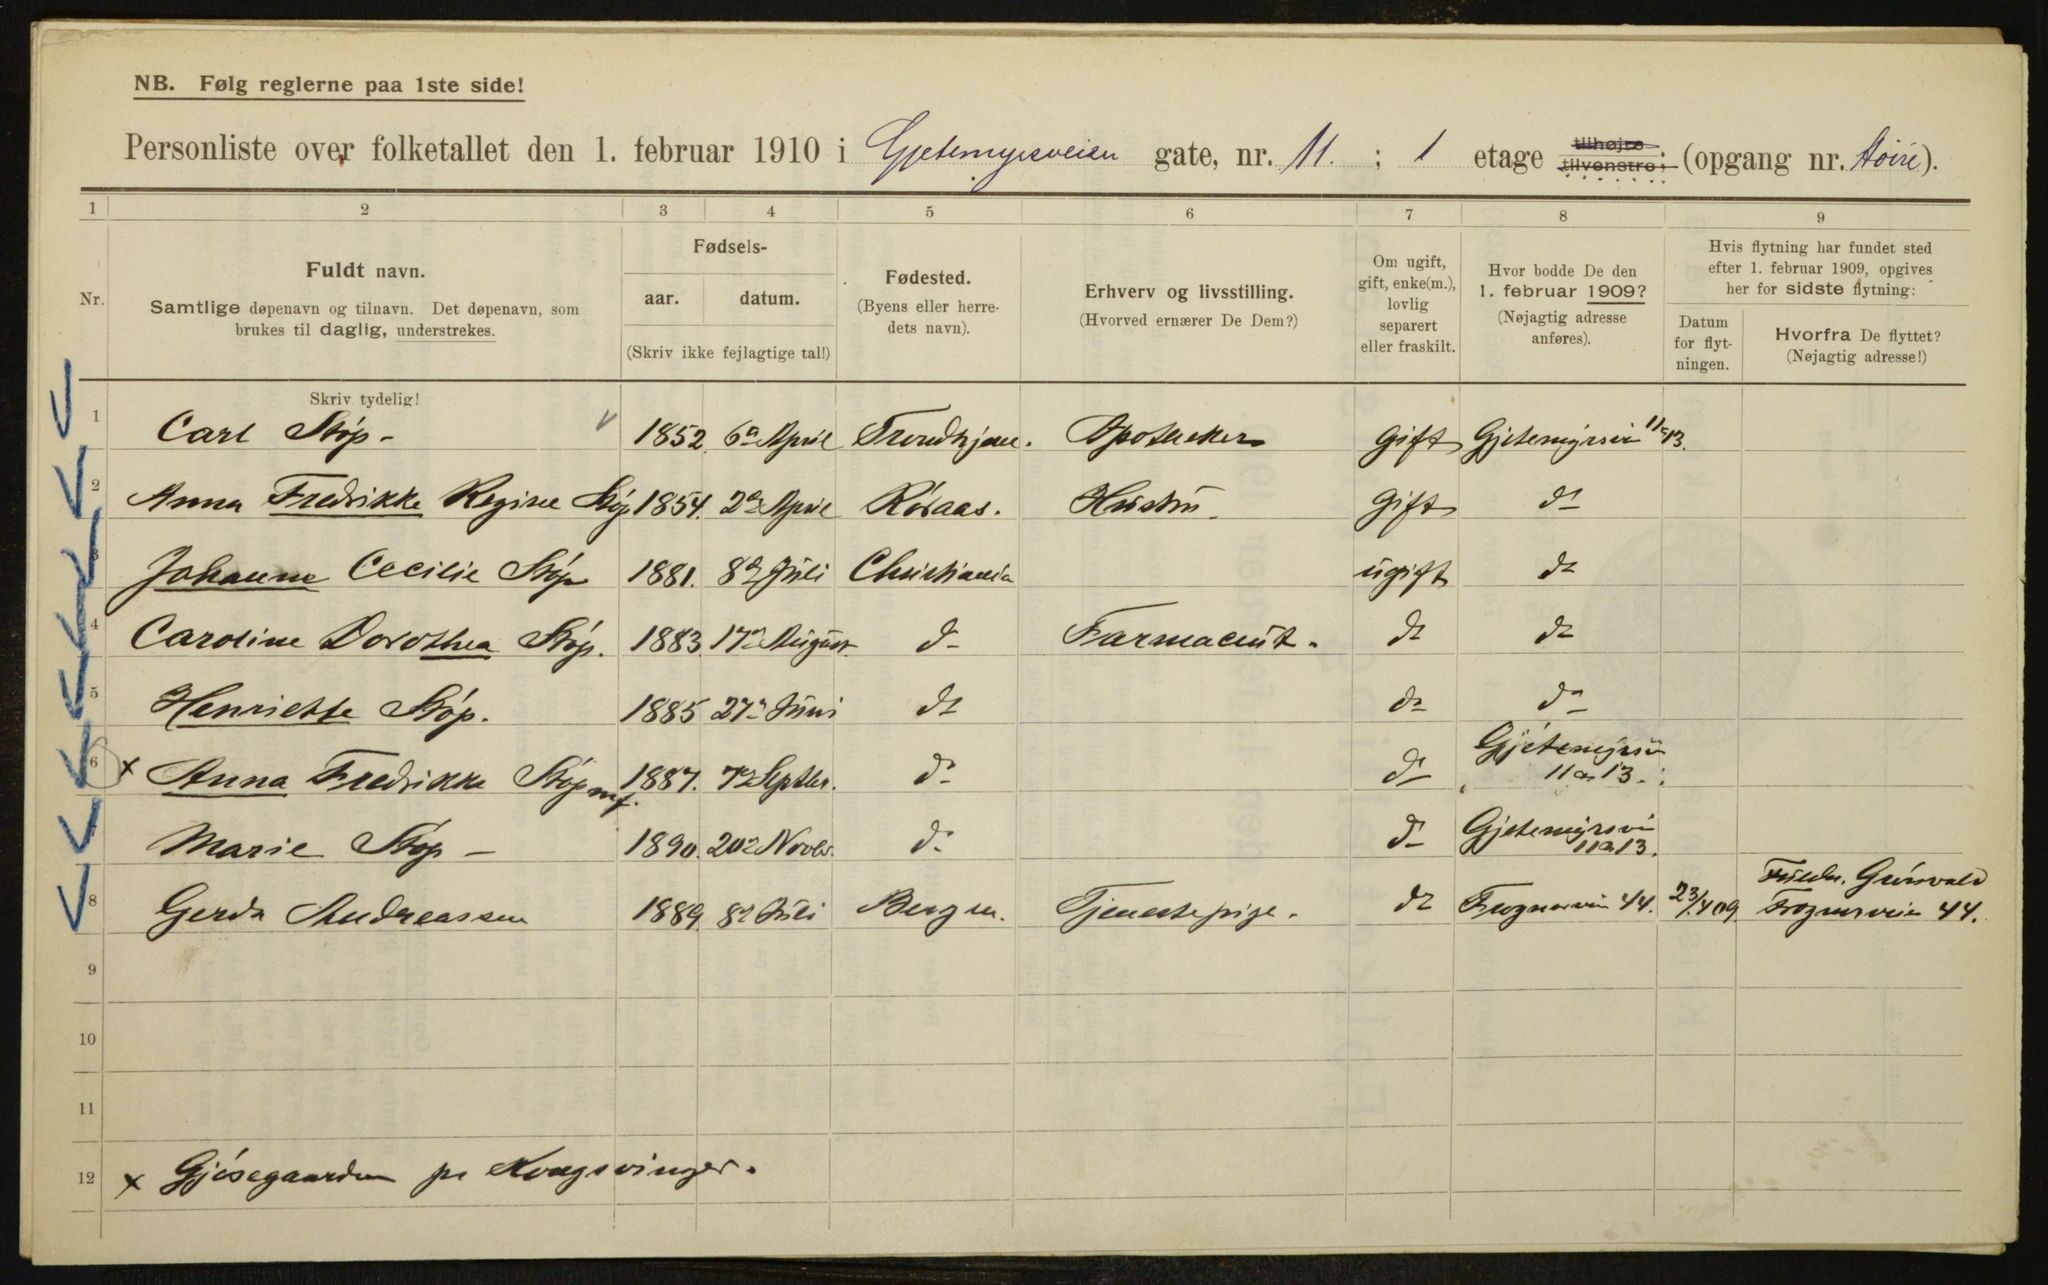 NB. Følg reglerne paa 1ste side!
Personliste over folketallet den 1. februar 1910 i Gjetemyrsveien gate, nr. 11. ; 1 etage tilhøjre tilvenstre; (opgang nr. Høire).
1 2 3 4 5 6 7 8 9
Nr.
Fuldt navn.
Samtlige døpenavn og tilnavn. Det døpenavn, som
brukes til daglig, understrekes.
Fødsels-
aar. datum.
(Skriv ikke fejlagtige tal!)
Fødested.
(Byens eller herre-
dets navn).
Erhverv og livsstilling.
(Hvorved ernærer De Dem?)
Om ugift,
gift, enke(m.),
lovlig
separert
eller fraskilt.
Hvor bodde De den
1. februar 1909?
(Nøjagtig adresse
anføres).
Hvis flytning har fundet sted
efter 1. februar 1909, opgives
her for sidste flytning:
Datum
for flyt-
ningen.
Hvorfra De flyttet?
(Nøjagtig adresse!)
Skriv tydelig!
1 Carl Støp - 1852. 6 April Trondhjem. Apotheker Gift Gjetemyrsvei 11 13.
2 Anna Fredrikke Regine Støp 1854. 2 April Röraas. Hustru. Gift do
3 Johanne Cecilie Støp 1881. 8 Juli Christiania ugift do
4 Caroline Dorothea Støp. 1883. 17 August do Farmaceut. do do
5 Henriette Støp. 1885 27 Juni do do do
6 x Anna Fredrikke Støp mf. 1887. 7 Septbr. do do Gjetemyrsvei
11 13.
7 Marie Støp - 1890. 20 Novbr. do do Gjetemyrsvei
11 13.
8 Gerda Andreassen 1889. 8 Juli Bergen. Tjenestepige. do Frognervei 44. 23/4 09 Grünvald
Frognerveien 44.
9
10
11
12 x Gjøsegaarden pr Kongsvinger.